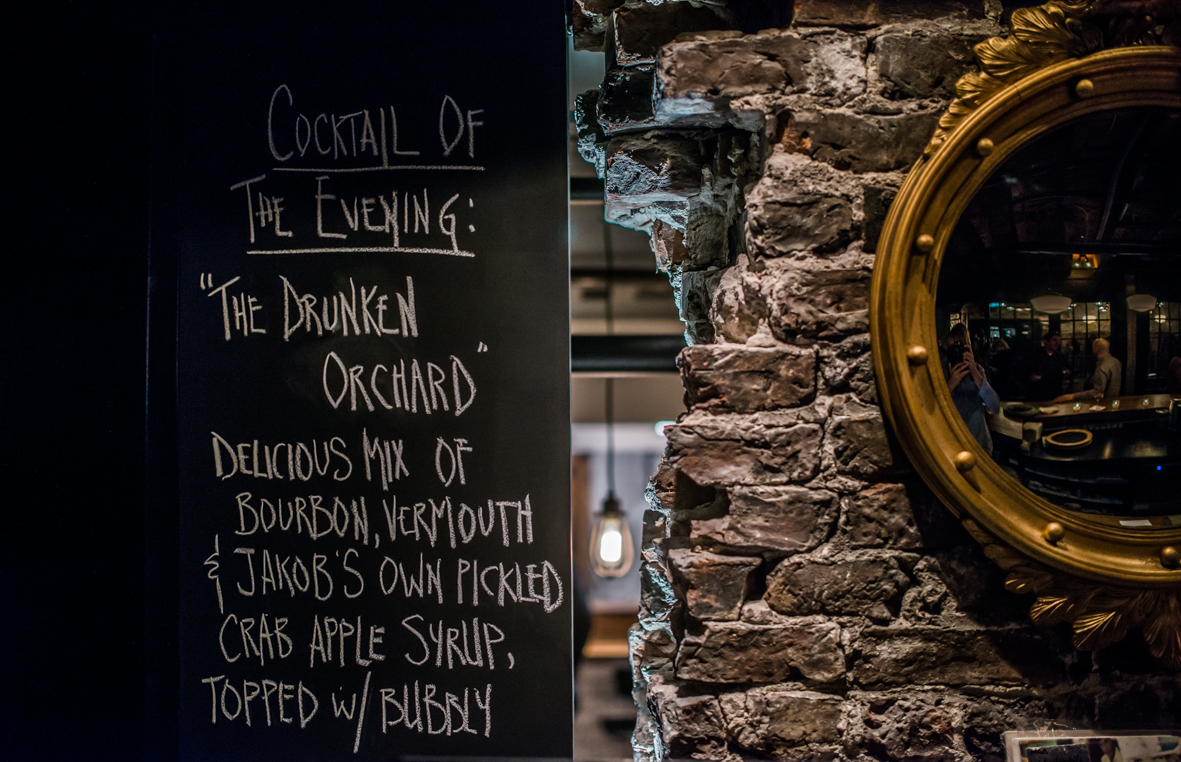 COCKTAIL OF
THE EVENING:
"THE DRUNKEN
ORCHARD"
DELICIOUS MIX OF
BOURBON, VERMOUTH
& JAKOB'S OWN PICKLED
CRAB APPLE SYRUP,
TOPPED W/ BUBBLY